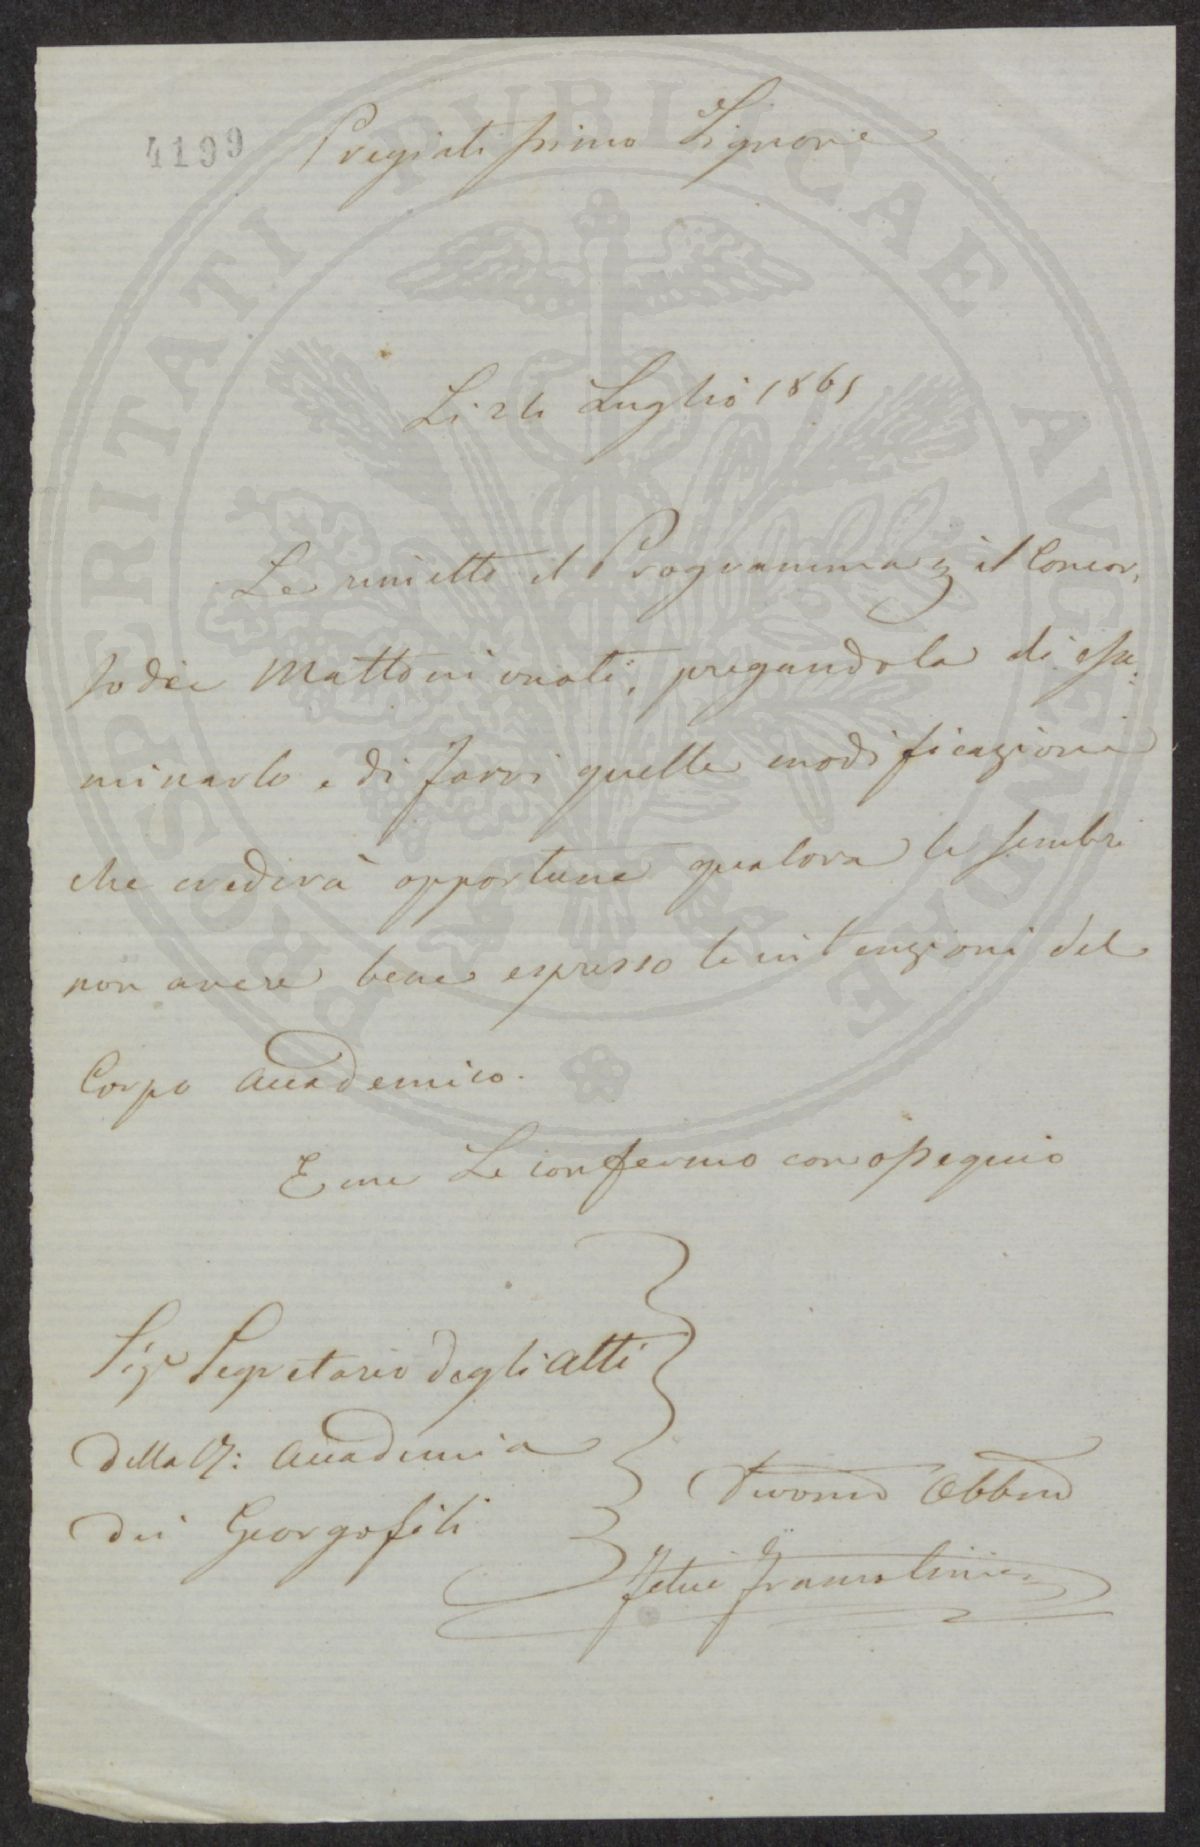 4199
Pregiatissimo Signore
Li 26 Luglio 1861
Le rimetto il Programma il Concor,
so dei Mattoni vuoti, pregandola di esa:
minarlo e di farvi quelle modificazioni
che crederà opportune qualora le sembri
non avere bene espresso le intenzioni del
Corpo Accademico.
E me Le confermo con ossequio
Sigr Segretario degli Atti
della R: Accademia
dei Georgofili
Devomo Obbmo
Felice Francolini
PROSPERITATI PUBLICAE AUGENDAE